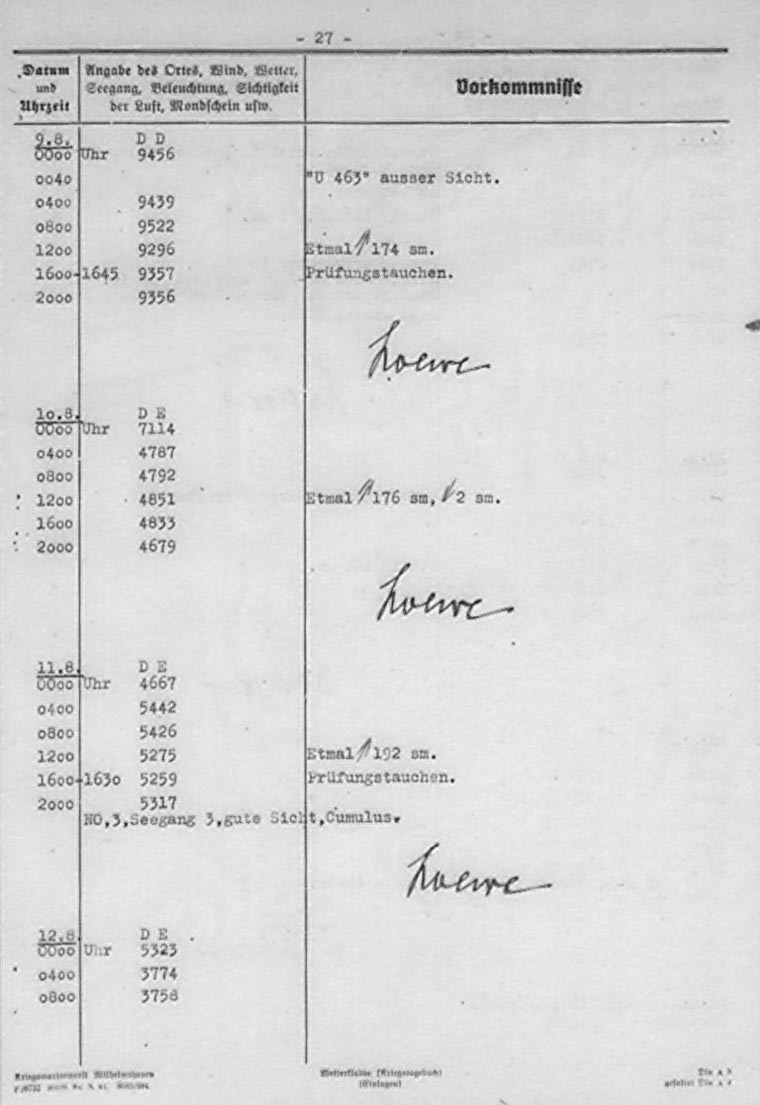 - 27 -
Datum und Uhrzeit
Angabe des Ortes, Wind, Wetter, Seegang, Beleuchtung, Sichtigkeit der Luft, Mondschein usw.
Vorkommnisse
9.8. D D
0000 Uhr 9456
0040 "U 463" ausser Sicht.
0400 9439
0800 9522
1200 9296 Etmal ↑ 174 sm.
1600-1645 9357 Prüfungstauchen.
2000 9356
Loewe
10.8. D E
0000 Uhr 7114
0400 4787
0800 4792
1200 4851 Etmal ↑ 176 sm, ↓ 2 sm.
1600 4833
2000 4679
Loewe
11.8. D E
0000 Uhr 4667
0400 5442
0800 5426
1200 5275 Etmal ↑ 192 sm.
1600-1630 5259 Prüfungstauchen.
2000 5317
NO,3,Seegang 3,gute Sicht,Cumulus.
Loewe
12.8. D E
0000 Uhr 5323
0400 3774
0800 3758
Kriegsmarinewerft Wilhelmshaven
Wetterkladde (Kriegstagebuch)
(Einlagen)
Din A 3
gefaltet Din A 4